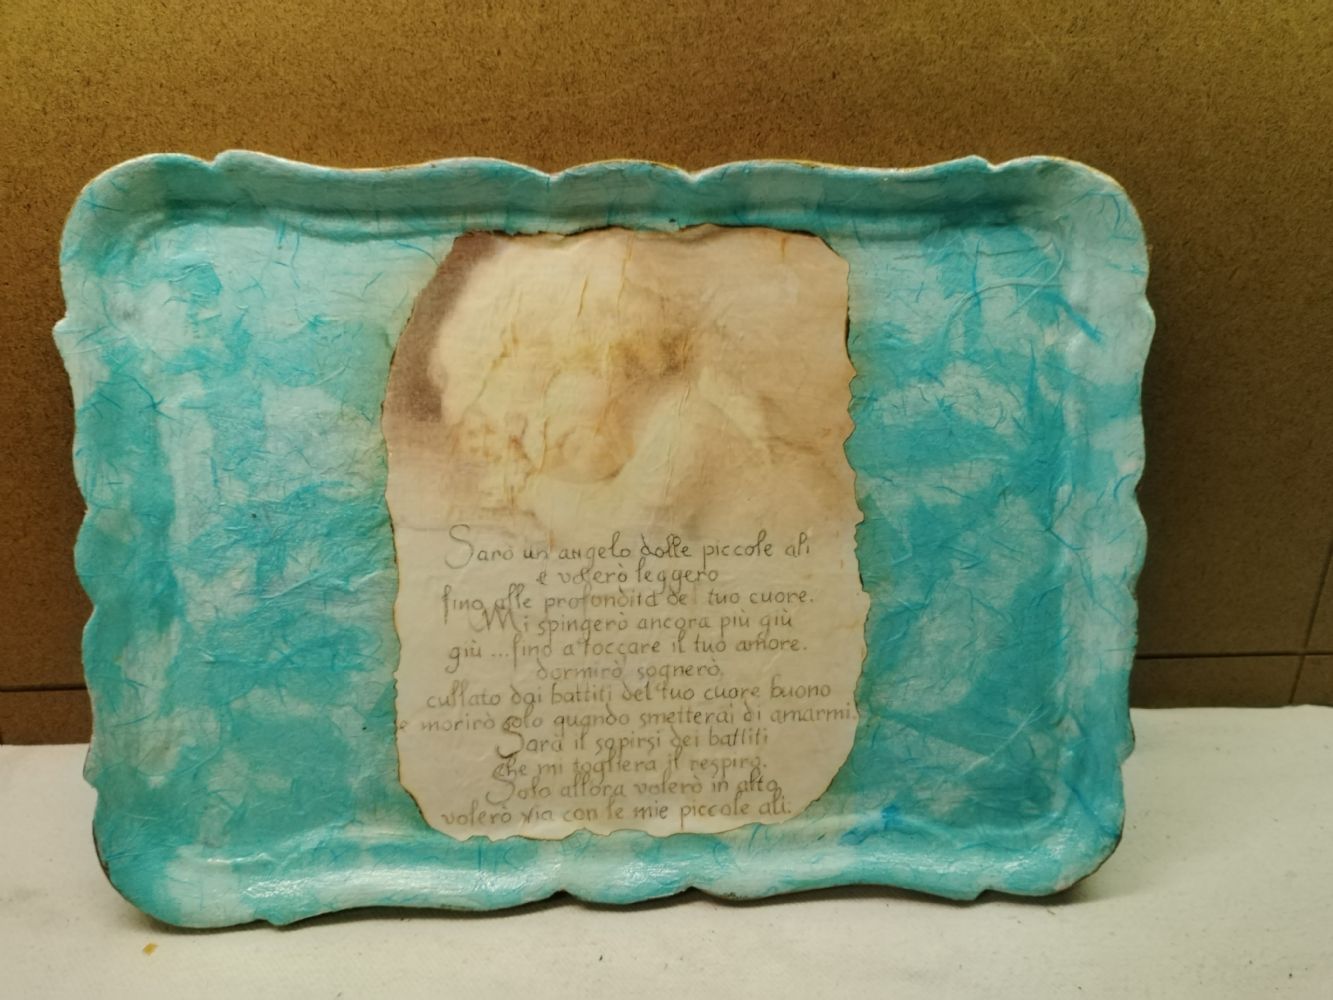 Sarò un angelo dalle piccole ali
e volerò leggero
fino alle profondità del tuo cuore.
Mi spingerò ancora più giù
giù ...fino a toccare il tuo amore.
dormirò sognerò,
cullato dai battiti del tuo cuore buono
e morirò solo quando smetterai di amarmi.
Sarà il sopirsi dei battiti
che mi toglierà il respiro.
Solo allora volerò in alto,
volerò via con le mie piccole ali.